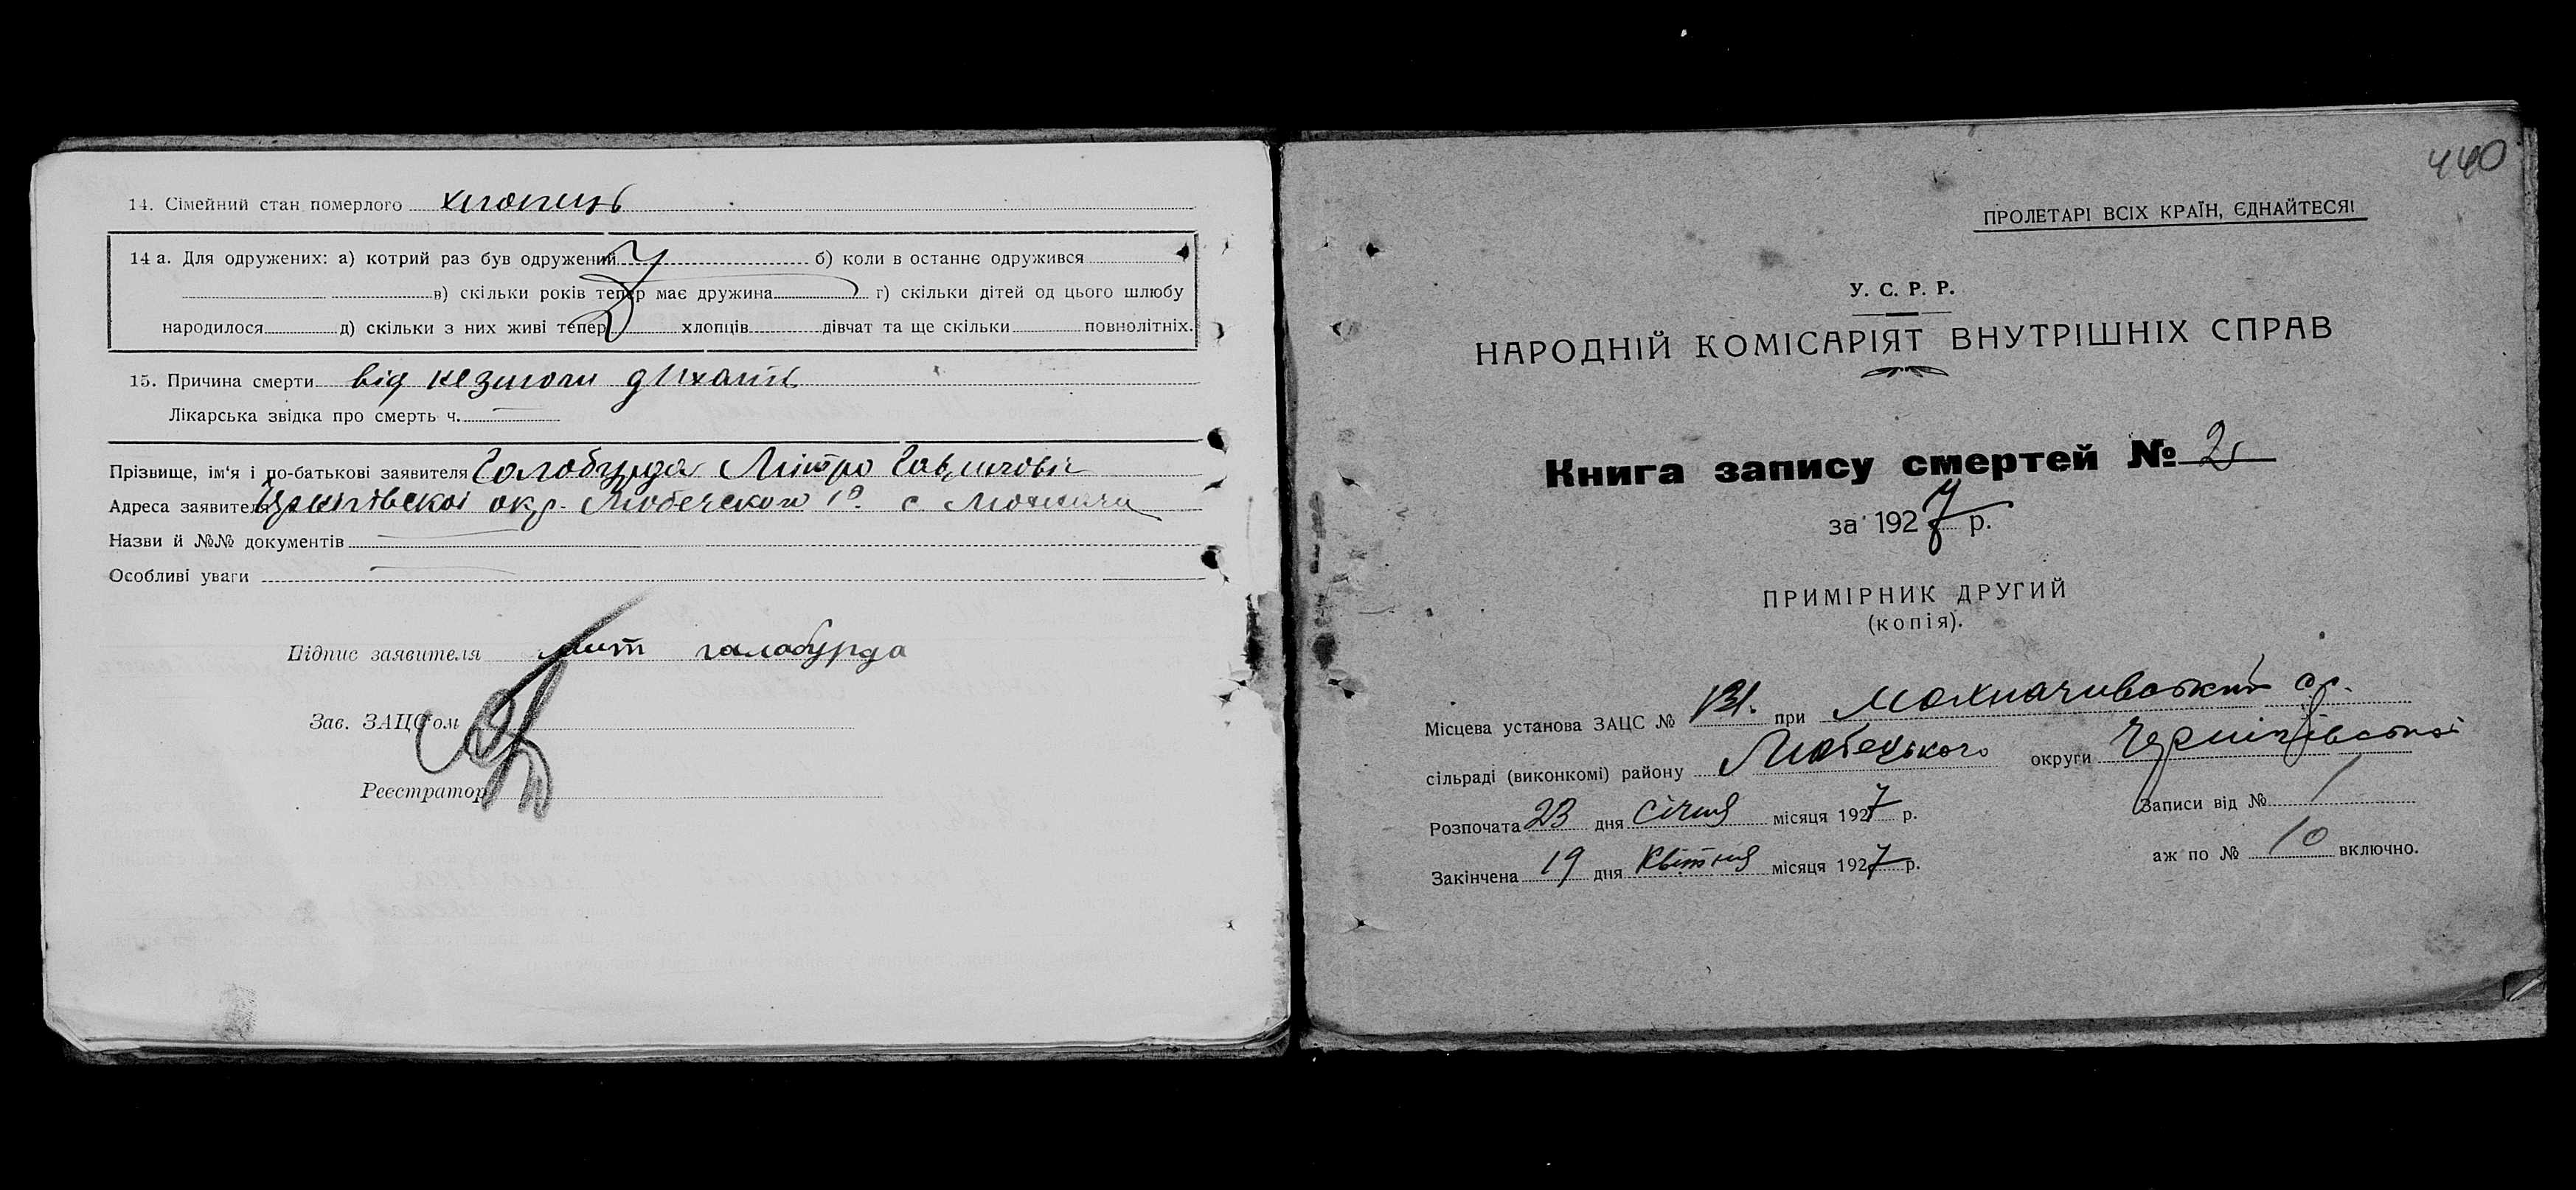 14. Сімейний стан померлого хлопець
14 а. Для одружених: а) котрий раз був одружений б) коли в останнє одружився
в) скільки років тепер має дружина г) скільки дітей од цього шлюбу
народилося д) скільки з них живі тепер хлопців дівчат та ще скільки повнолітніх.
15. Причина смерти від незмоги дихать
Лікарська звідка про смерть ч.
Прізвище, ім'я і по-батькові заявителя Голобурда Мітро
Адреса заявителя окр. Любечского с
Назви й №№ документів
Особливі уваги
Підпис заявителя галабурда
Зав. ЗАЦС'ом
Реєстратор
440
ПРОЛЕТАРІ ВСІХ КРАЇН, ЄДНАЙТЕСЯ!
У. С. Р. Р.
НАРОДНІЙ КОМІСАРІЯТ ВНУТРІШНІХ СПРАВ
Книга запису смертей № 2
за 1927 р.
ПРИМІРНИК ДРУГИЙ
(копія).
Місцева установа ЗАЦС № при
сільраді (виконкомі) району Любецького округи Чернігівської
Розпочата 23 дня січня місяця 1927 р. Записи від № 1
Закінчена 19 дня Квітня місяця 1927 р. аж по № 10 включно.